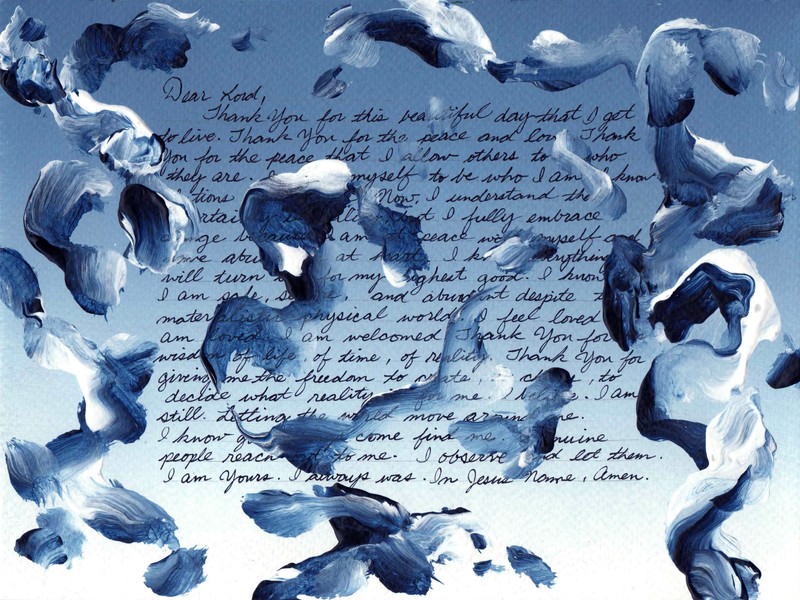 Dear Lord,
Thank You for this beautiful day that I get
to live. Thank You for the peace and love. Thank
You for the peace that I allow others to who
they are. I myself to be who I am. I know
Now, I understand the
I fully embrace
because I am at peace myself and
at heart. I everything
will turn for my highest good. I know
I am safe, and abundant despite
materialistic physical world. I feel loved
am loved. I am welcomed. Thank You for
wisdom of life, of time, of reality. Thank You for
giving me the freedom to create, to
decide what reality me. I am
still. Letting the world move around me.
I know come find me. Genuine
people reach out to me. I observe and let them.
I am Yours. I always was. In Jesus Name, Amen.